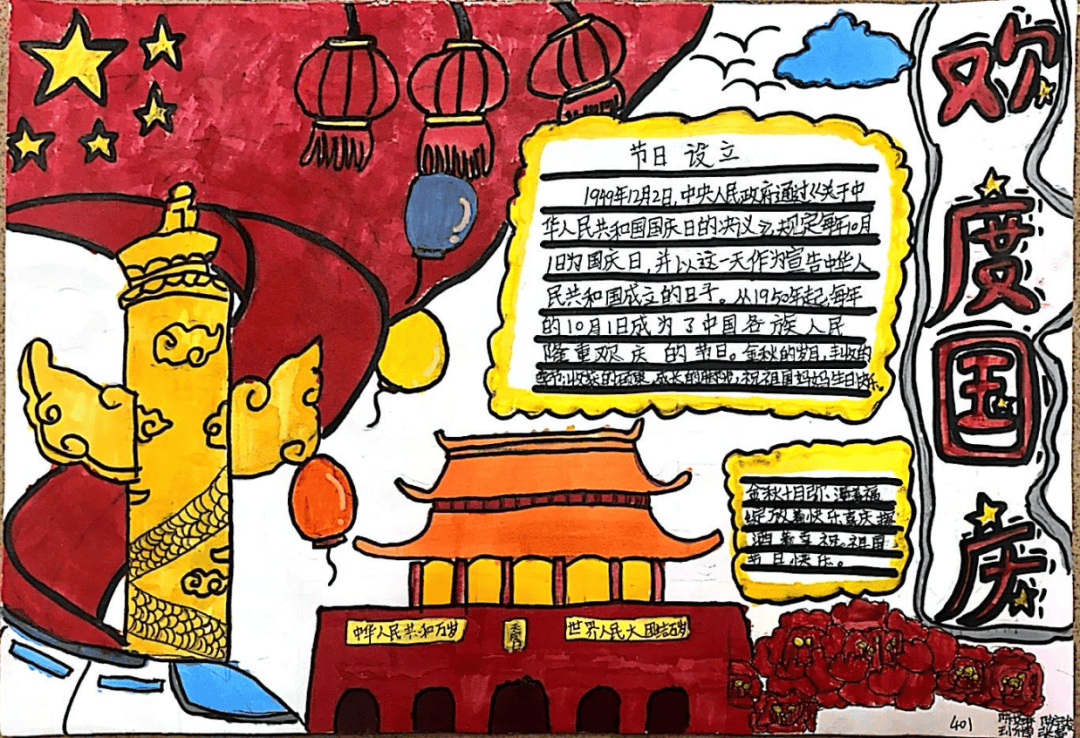 欢度国庆
节日设立
1949年12月2日,中央人民政府通过《关于中
华人民共和国国庆日的决议》,规定每年10月
1日为国庆日,并以这一天作为宣告中华人
民共和国成立的日子。从1950年起,每年
的10月1日成为了中国各族人民
隆重欢庆的节日。金秋的岁月,丰收的
季节,收获的硕果,成长的,祝祖国妈妈生日快乐。
金秋十日弥漫着福
绽放着快乐喜庆
酒 祝祖国
节日快乐。
中华人民共和万岁
世界人民大团结万岁
401